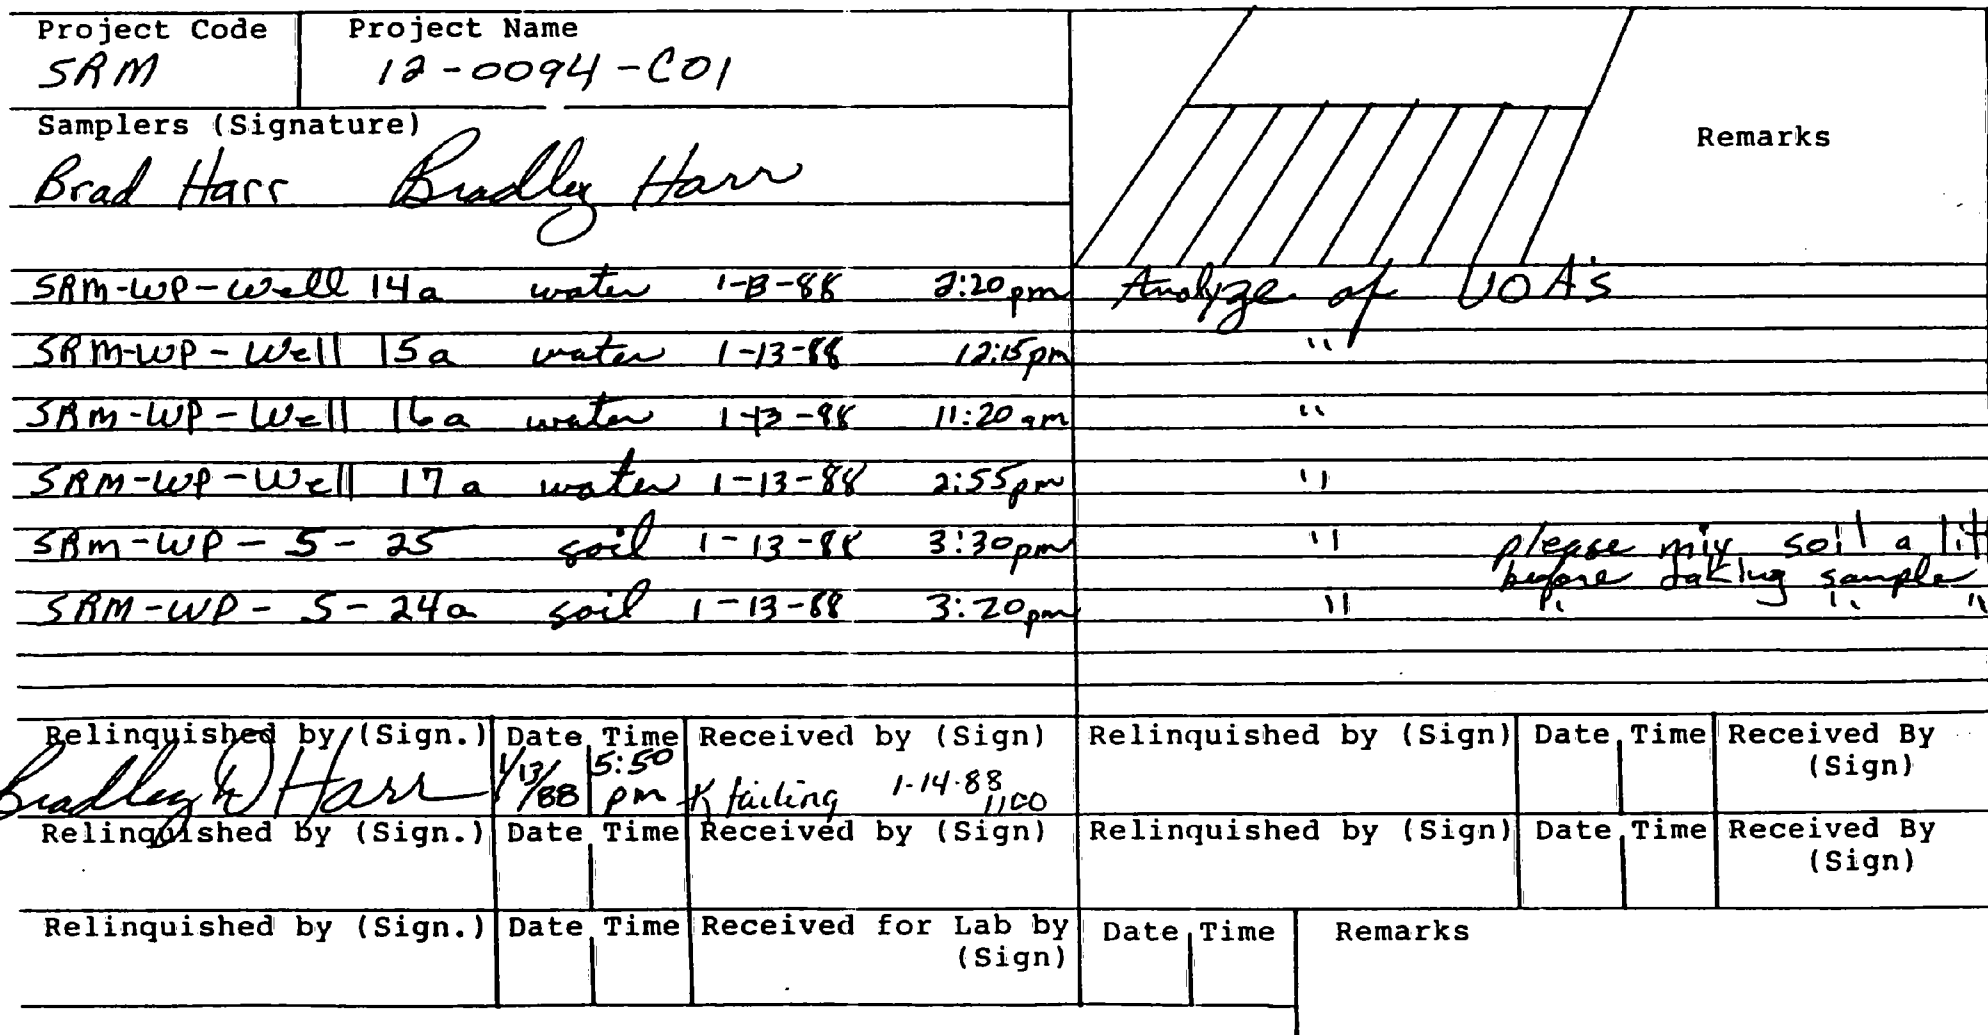 Project Code Project Name
SRM 12-0094-C01
Samplers (Signature)
Remarks
Brad Harr Bradley Harr
SRM-WP-Well 14a water 1-13-88 2:20pm Analyze of VOA's
SRM-WP-Well 15a water 1-13-88 12:15pm "
SRM-WP-Well 16a water 1-13-88 11:20am "
SRM-WP-Well 17a water 1-13-88 2:55pm "
SRM-WP-S-25 soil 1-13-88 3:30pm " please mix soil a litt
before taking sample
SRM-WP-S-24a soil 1-13-88 3:20pm " " " "
Relinquished by (Sign.) Date Time Received by (Sign) Relinquished by (Sign) Date Time Received By (Sign)
Bradley D Harr 1/13/88 5:50 pm K 1-14-88 1100
Relinquished by (Sign.) Date Time Received by (Sign) Relinquished by (Sign) Date Time Received By (Sign)
Relinquished by (Sign.) Date Time Received for Lab by (Sign) Date Time Remarks